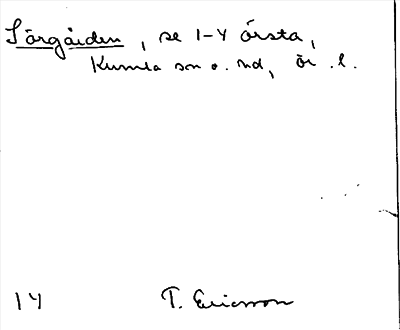 Sörgården, se 1-4 Örsta,
Kumla sn o. hd, ör. l.
14 T. Ericsson